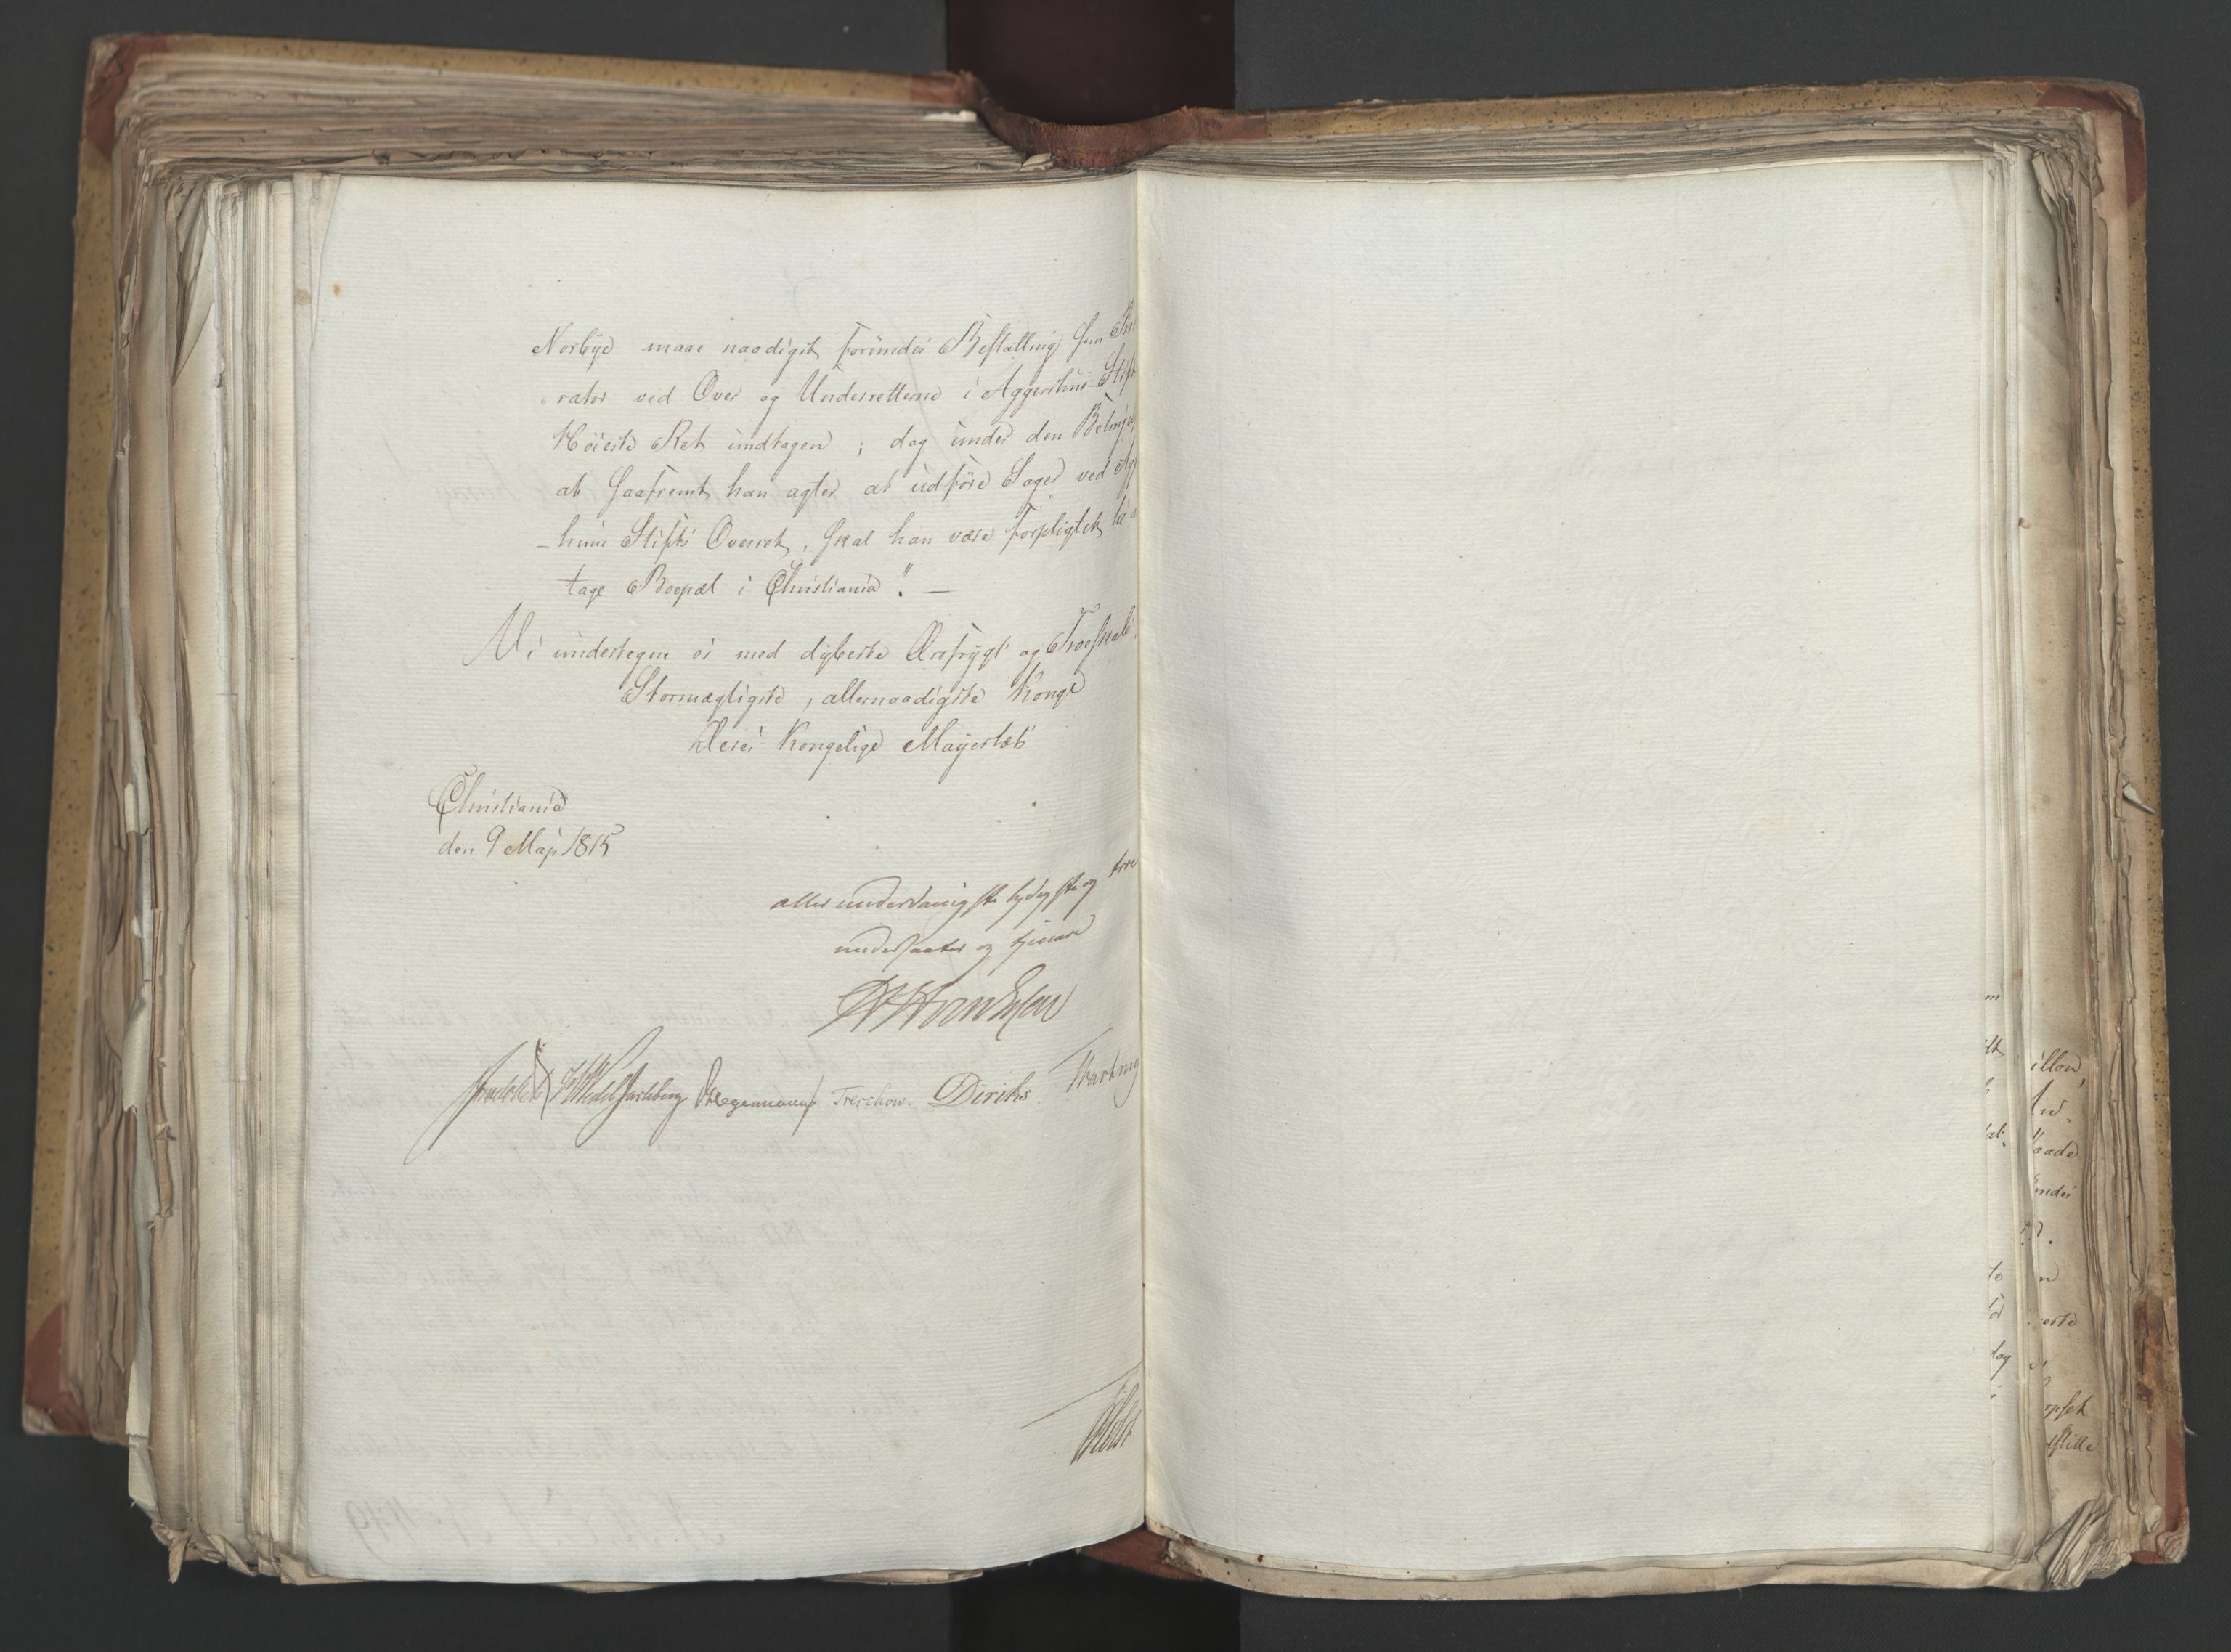 Norbye maae naadigst forundes Bestalling som Pro
rator ved Over og Underretterne i Aggershuus Stift
Höieste Ret undtagen; dog under den Beting
at saafremt han agter at udföre Sager ved Agg
-huus Stifts Overret, skal han være forpligtet til a
tage Boepæl i Christiania". —
Vi undertegne os med dybeste Ærefrygt og Troeskab,
Stormægtigste, allernaadigste Konge
Deres Kongelige Mayestæts
Christiania
den 9 Maji 1815
allerunderdanigste lydigste og troe
undersaatter og tjenere
Wedel Jarlsberg Hegermann Treschow. Diriks.
Holst